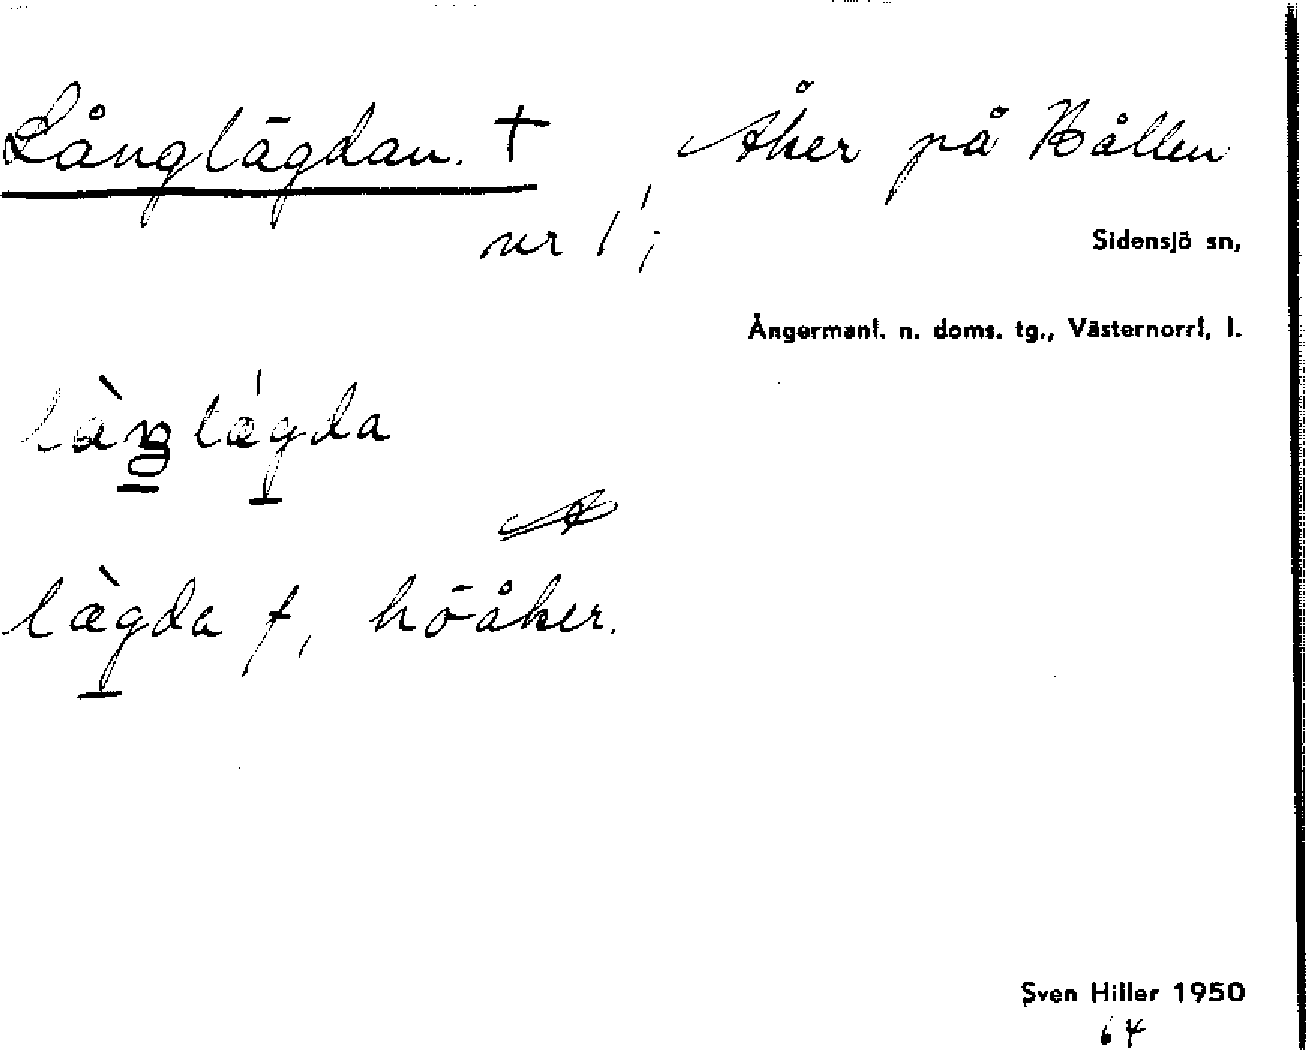 Långlägdan. † Åker på Bållen
nr 1¹;
Sidensjö sn,
Ångermanl. n. doms. tg., Västernorrl. l.
làŋlǽgda
læ̀gda f, höåker.
Sven Hiller 1950
64